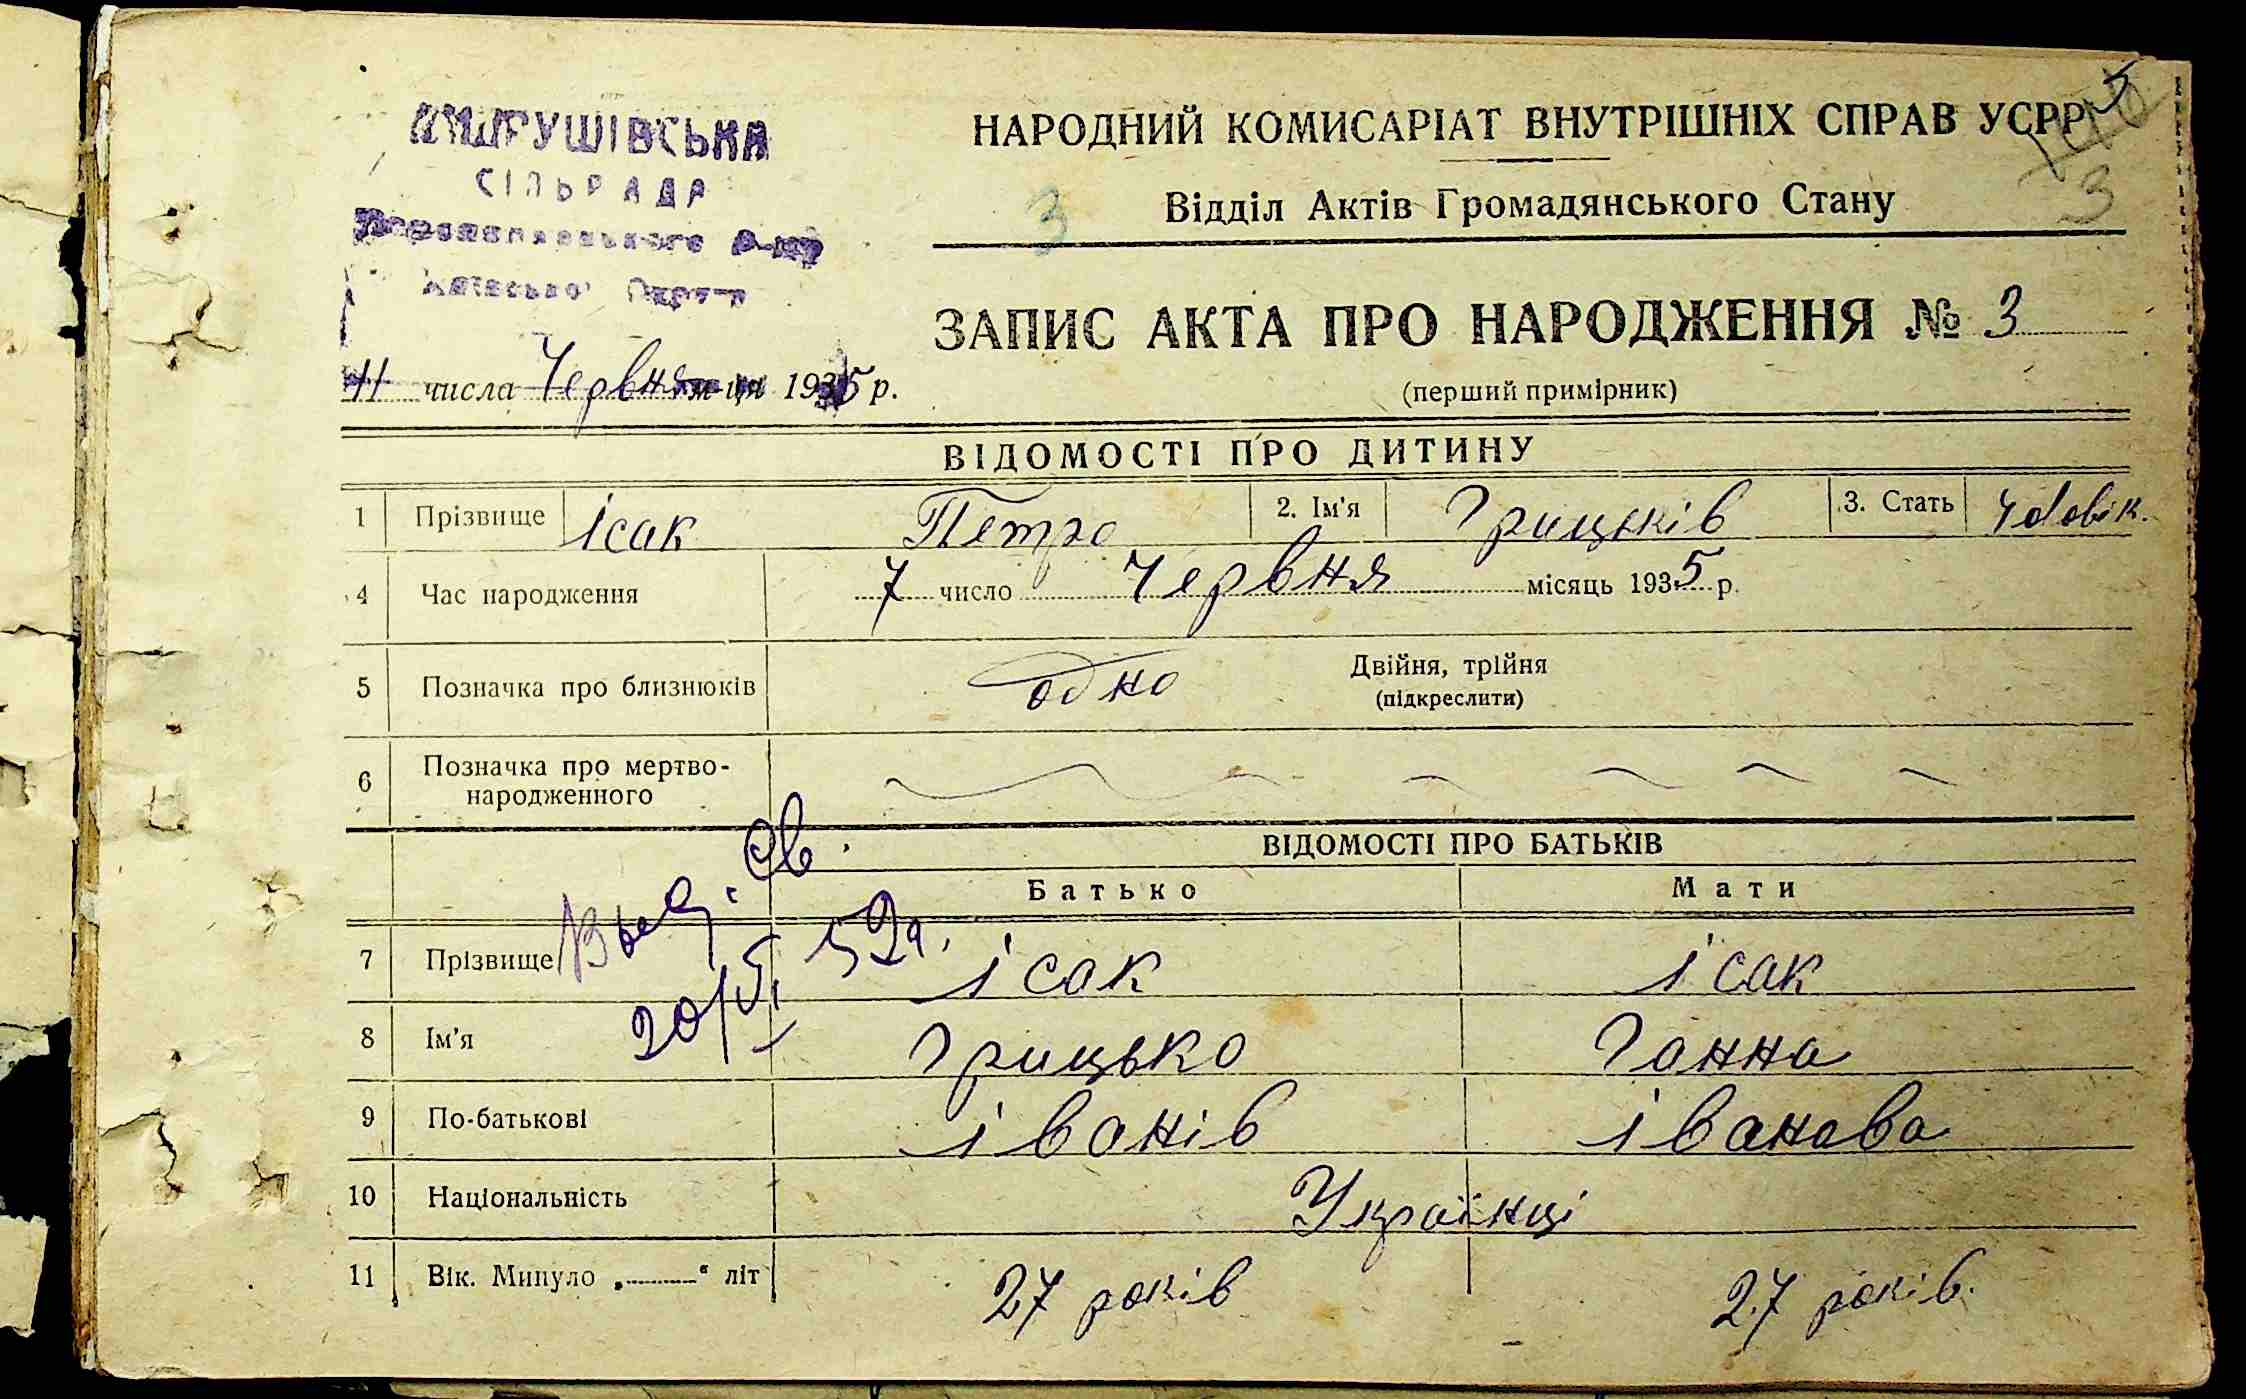 СІЛЬРАДА
НАРОДНИЙ КОМИСАРІАТ ВНУТРІШНІХ СПРАВ УСРР
3
3
Відділ Актів Громадянського Стану
ЗАПИС АКТА ПРО НАРОДЖЕННЯ № 3
(перший примірник)
11 числа Червня м-ця 1935 р.
ВІДОМОСТІ ПРО ДИТИНУ
1 Прізвище Ісак Петро 2. Ім'я Грицьків 3. Стать Чоловік.
4 Час народження 7 число Червня місяць 1935 р.
5 Позначка про близнюків одно Двійня, трійня
(підкреслити)
6 Позначка про мертво-
народженного
ВІДОМОСТІ ПРО БАТЬКІВ
Батько Мати
7 Прізвище Ісак Ісак
8 Ім'я Грицько Ганна
9 По-батькові Іванів Іванова
10 Національність Українці
11 Вік. Минуло „ “ літ 27 років 27 років.
20/VI 52г.